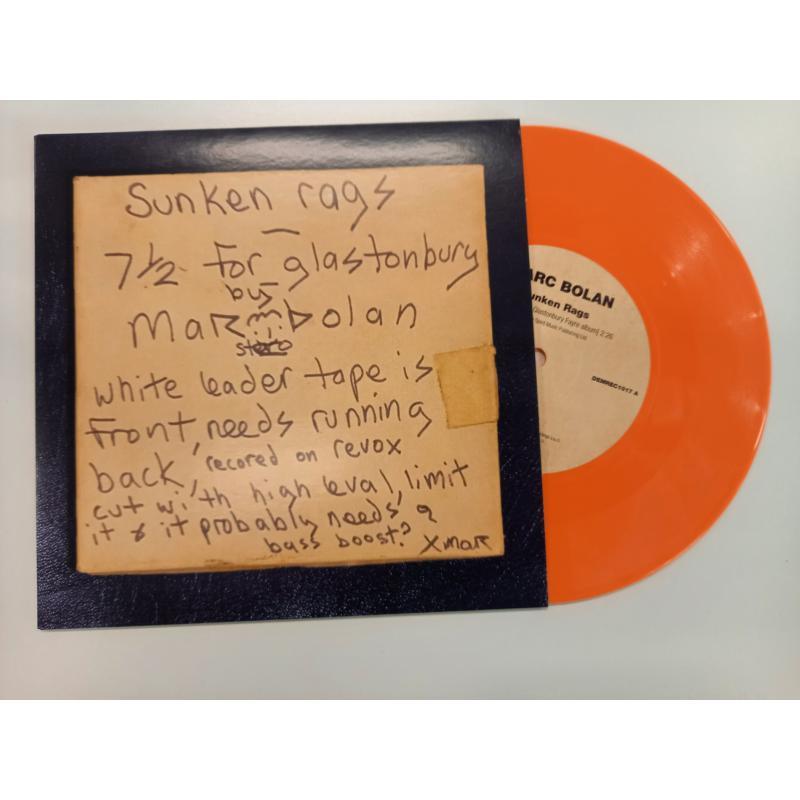 Sunken rags
7 1/2 for glastonbury
by
Marc Bolan
stereo
white leader tape is
front, needs running
back, recored on revox
cut with high leval, limit
it & it probably needs a
bass boost? X marc
ARC BOLAN
unken Rags
Glastonbury Fayre album] 2:26
Spirit Music Publishing Ltd
DEMREC1017 A